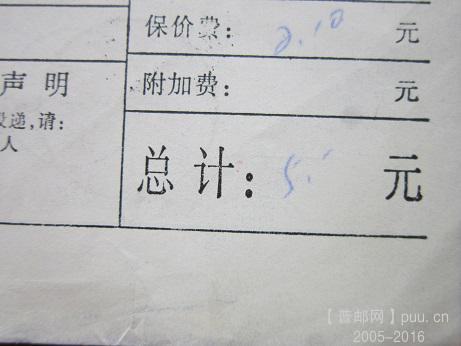 保价费： 元
声明
附加费： 元
递，请：
人
总计： 5. 元
【普邮网】puu.cn
2005-2016